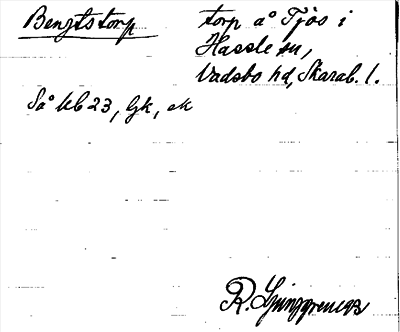 Bengtstorp torp å Tjos i
Hassle sn,
Vadsbo hd, Skarab. l.
Så kb 23, Gk, ek
R. Ljunggren 1913